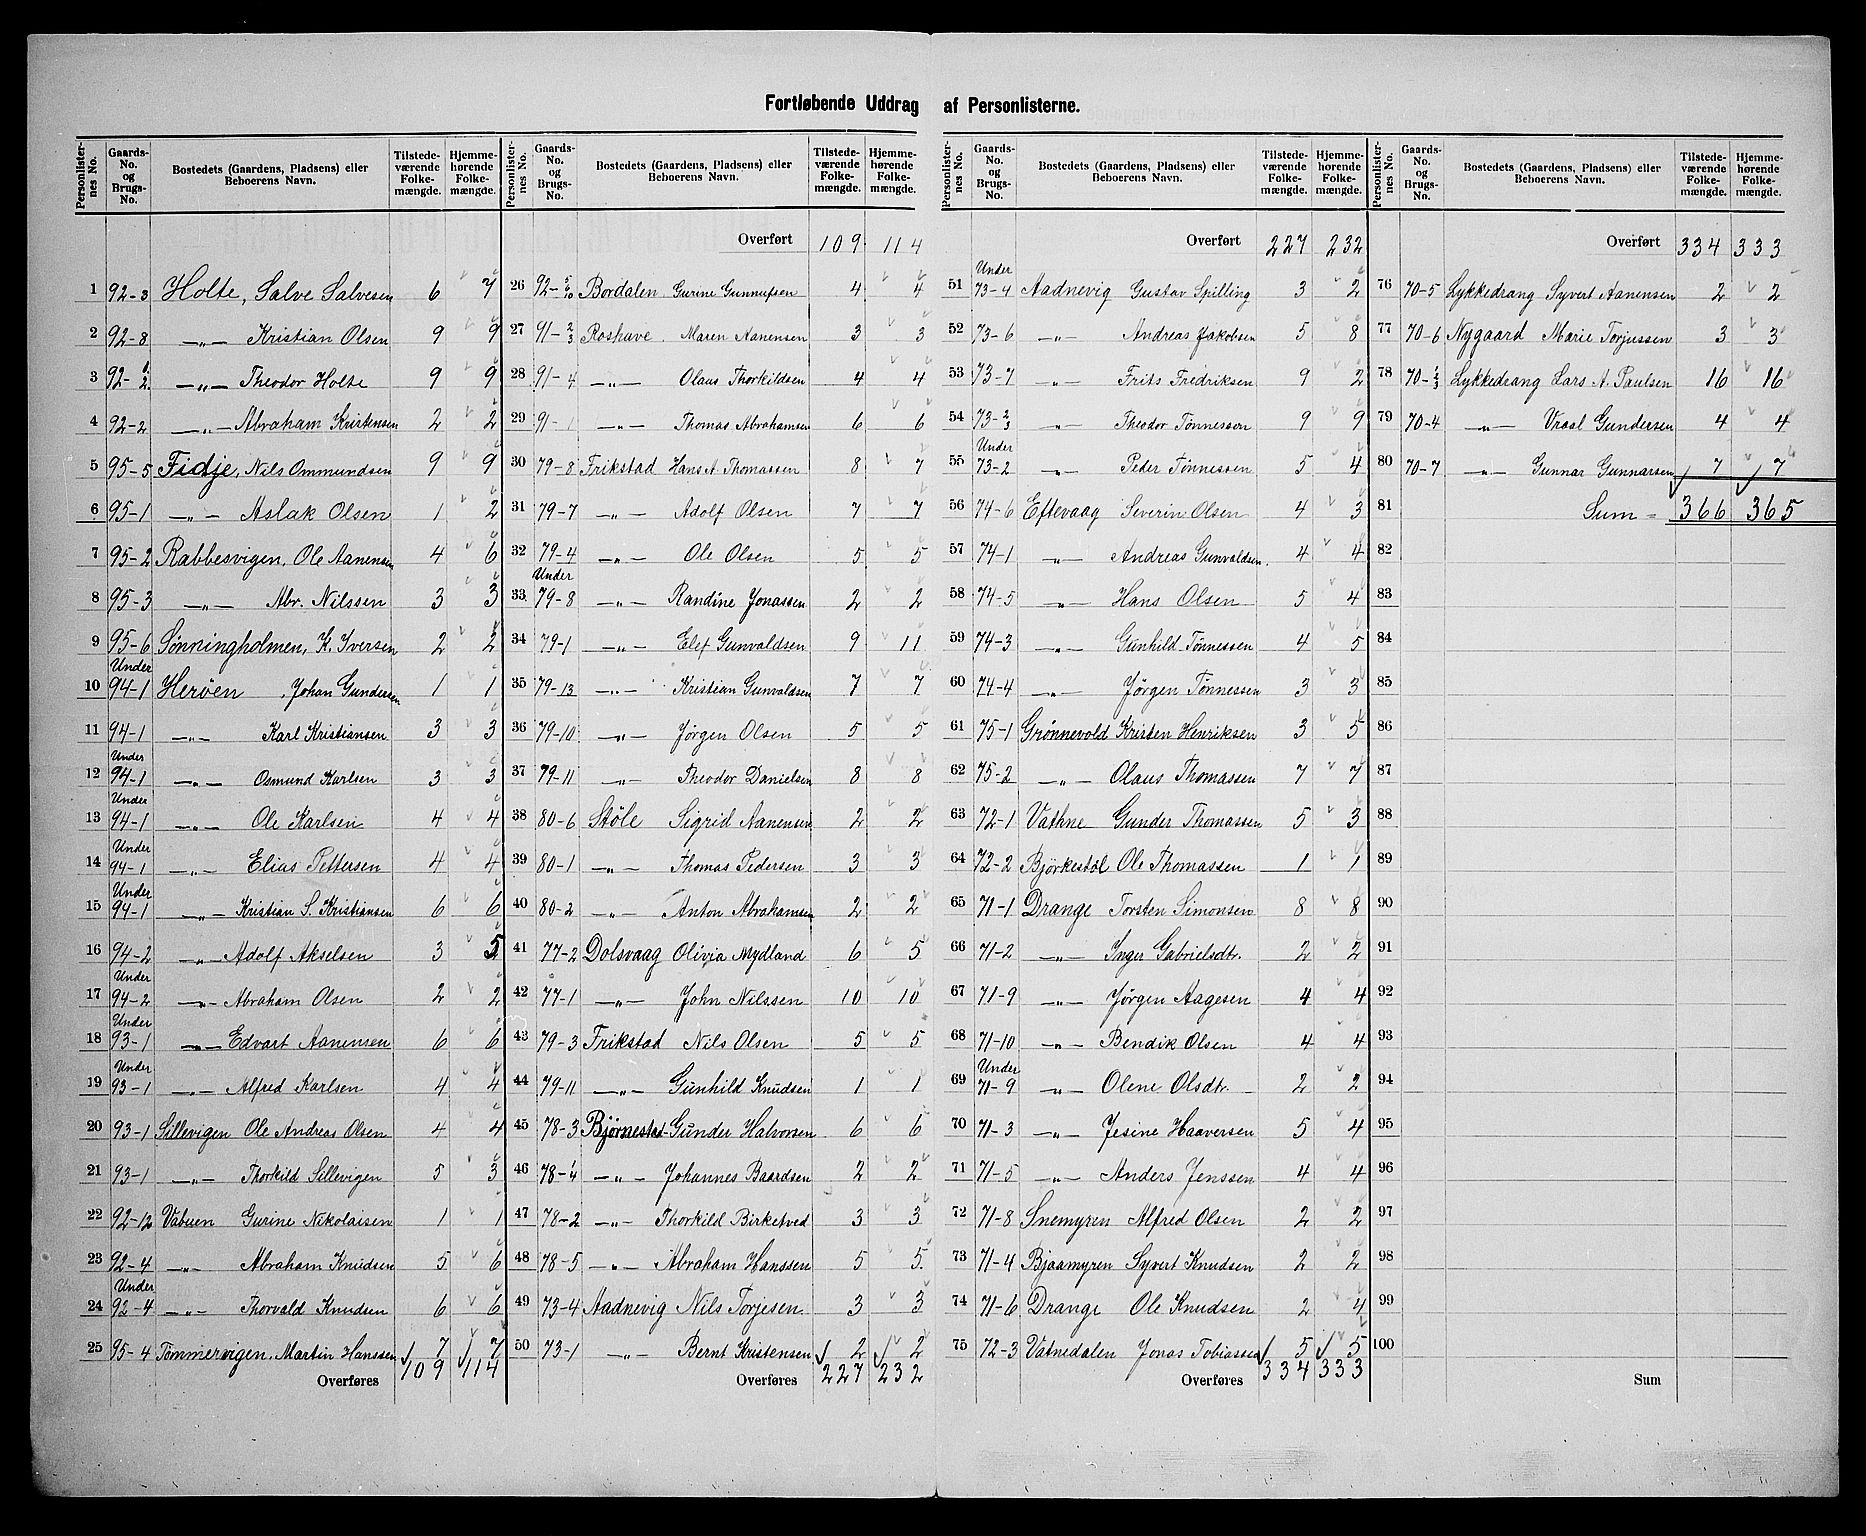 Fortløbende Uddrag af Personlisterne.
Personlisternes No. Gaards-No. og Brugs-No. Bostedets (Gaardens, Pladsens) eller Beboerens Navn. Tilstedeværende Folkemængde. Hjemmehørende Folkemængde.
1 92-3 Holte, Salve Salvesen 6 7
2 92-8 —„— Kristian Olsen 9 9
3 92-1/2 —„— Theodor Holte 9 9
4 92-2 —„— Abraham Kristensen 2 2
5 95-5 Fidje, Nils Ommundsen 9 9
6 95-1 —„— Aslak Olsen 1 2
7 95-2 Rabbesvigen, Ole Aanensen 4 6
8 95-3 —„— Abr. Nilssen 3 3
9 95-6 Sønningholmen, K. Iversen 2 2
10 Under 94-1 Herøen, Johan Gundersen 1 1
11 94-1 —„— Karl Kristiansen 3 3
12 Under 94-1 —„— Osmund Karlsen 3 3
13 Under 94-1 —„— Ole Karlsen 4 4
14 Under 94-1 —„— Elias Pettersen 4 4
15 Under 94-1 —„— Kristian S. Kristiansen 6 6
16 94-2 —„— Adolf Akselsen 3 5
17 Under 94-2 —„— Abraham Olsen 2 2
18 Under 93-1 —„— Edvart Aanensen 6 6
19 Under 93-1 —„— Alfred Karlsen 4 4
20 93-1 Sillevigen Ole Andreas Olsen 4 4
21 93-1 —„— Thorkild Sillevigen 5 3
22 92-12 Vabuen Gurine Nikolaisen 1 1
23 92-4 —„— Abraham Knudsen 5 6
24 Under 92-4 —„— Thorvald Knudsen 6 6
25 95-4 Tømmervigen, Martin Hanssen 7 7
Overføres 109 114
Personlisternes No. Gaards-No. og Brugs-No. Bostedets (Gaardens, Pladsens) eller Beboerens Navn. Tilstedeværende Folkemængde. Hjemmehørende Folkemængde.
Overført 109 114
26 92-5/6/10 Bordalen Gurine Gunnufsen 4 4
27 91-2/3 Roshave Maren Aanensen 3 3
28 91-4 —„— Olaus Thorkildsen 4 4
29 91-1 —„— Thomas Abrahamsen 6 6
30 79-8 Frikstad Hans A. Thomassen 8 7
31 79-7 —„— Adolf Olsen 7 7
32 79-4 —„— Ole Olsen 5 5
33 Under 79-8 —„— Randine Jonassen 2 2
34 79-1 —„— Elef Gunvaldsen 9 11
35 79-13 —„— Kristian Gunvaldsen 7 7
36 79-10 —„— Jørgen Olsen 5 5
37 79-11 —„— Theodor Danielsen 8 8
38 80-6 Støle Sigrid Aanensen 2 2
39 80-1 —„— Thomas Pedersen 3 3
40 80-2 —„— Anton Abrahamsen 2 2
41 77-2 Dolsvaag Olivia Mydland 6 5
42 77-1 —„— John Nilssen 10 10
43 79-3 Frikstad Nils Olsen 5 5
44 79-11 —„— Gunhild Knudsen 1 1
45 78-3 Bjørnestad Gunder Halvorsen 6 6
46 78-1/4 —„— Johannes Baardsen 2 2
47 78-2 —„— Thorkild Birketved 3 3
48 78-5 —„— Abraham Hanssen 5 5
49 73-4 Aadnevig Nils Torjesen 3 3
50 73-1 —„— Bernt Kristensen 2 2
Overføres 227 232
Personlisternes No. Gaards-No. og Brugs-No. Bostedets (Gaardens, Pladsens) eller Beboerens Navn. Tilstedeværende Folkemængde. Hjemmehørende Folkemængde.
Overført 227 232
51 Under 73-4 Aadnevig Gustav Spilling 3 2
52 73-6 —„— Andreas Jakobsen 5 8
53 73-7 —„— Frits Fredriksen 9 2
54 73-2/3 —„— Theodor Tønnesson 9 9
55 Under 73-2 —„— Peder Tønnessen 5 4
56 74-6 Eftevaag Severin Olsen 4 3
57 74-1 —„— Andreas Gunvaldsen 4 4
58 74-5 —„— Hans Olsen 5 4
59 74-3 —„— Gunhild Tønnessen 4 5
60 74-4 —„— Jørgen Tønnessen 3 3
61 75-1 Grønnevold Kristen Henriksen 3 5
62 75-2 —„— Olaus Thomassen 7 7
63 72-1 Vathne Gunder Thomassen 5 3
64 72-2 Bjørkestøl Ole Thomassen 1 1
65 71-1 Drange Torsten Simonsen 8 8
66 71-2 —„— Inger Gabrielsdtr. 2 2
67 71-9 —„— Jørgen Aagesen 4 4
68 71-10 —„— Bendik Olsen 4 4
69 Under 71-9 —„— Olene Olsdtr. 2 2
70 71-3 —„— Jesine Haaversen 5 4
71 71-5 —„— Anders Jenssen 4 4
72 71-8 Snemyren Alfred Olsen 2 2
73 71-4 Bjaamyren Syvert Knudsen 2 2
74 71-6 Drange Ole Knudsen 2 4
75 72-3 Vatnedalen Jonas Tobiassen 5 5
Overføres 334 333
Personlisternes No. Gaards-No. og Brugs-No. Bostedets (Gaardens, Pladsens) eller Beboerens Navn. Tilstedeværende Folkemængde. Hjemmehørende Folkemængde.
Overført 334 333
76 70-5 Lykkedrang Syvert Aanensen 2 2
77 70-6 Nygaard Marie Torjussen 3 3
78 70-1/2/3 Lykkedrang Lars A. Paulsen 16 16
79 70-4 —„— Vraal Gundersen 4 4
80 70-7 —„— Gunnar Gunnarsen 7 7
81 Sum = 366 365
82
83
84
85
86
87
88
89
90
91
92
93
94
95
96
97
98
99
100
Sum